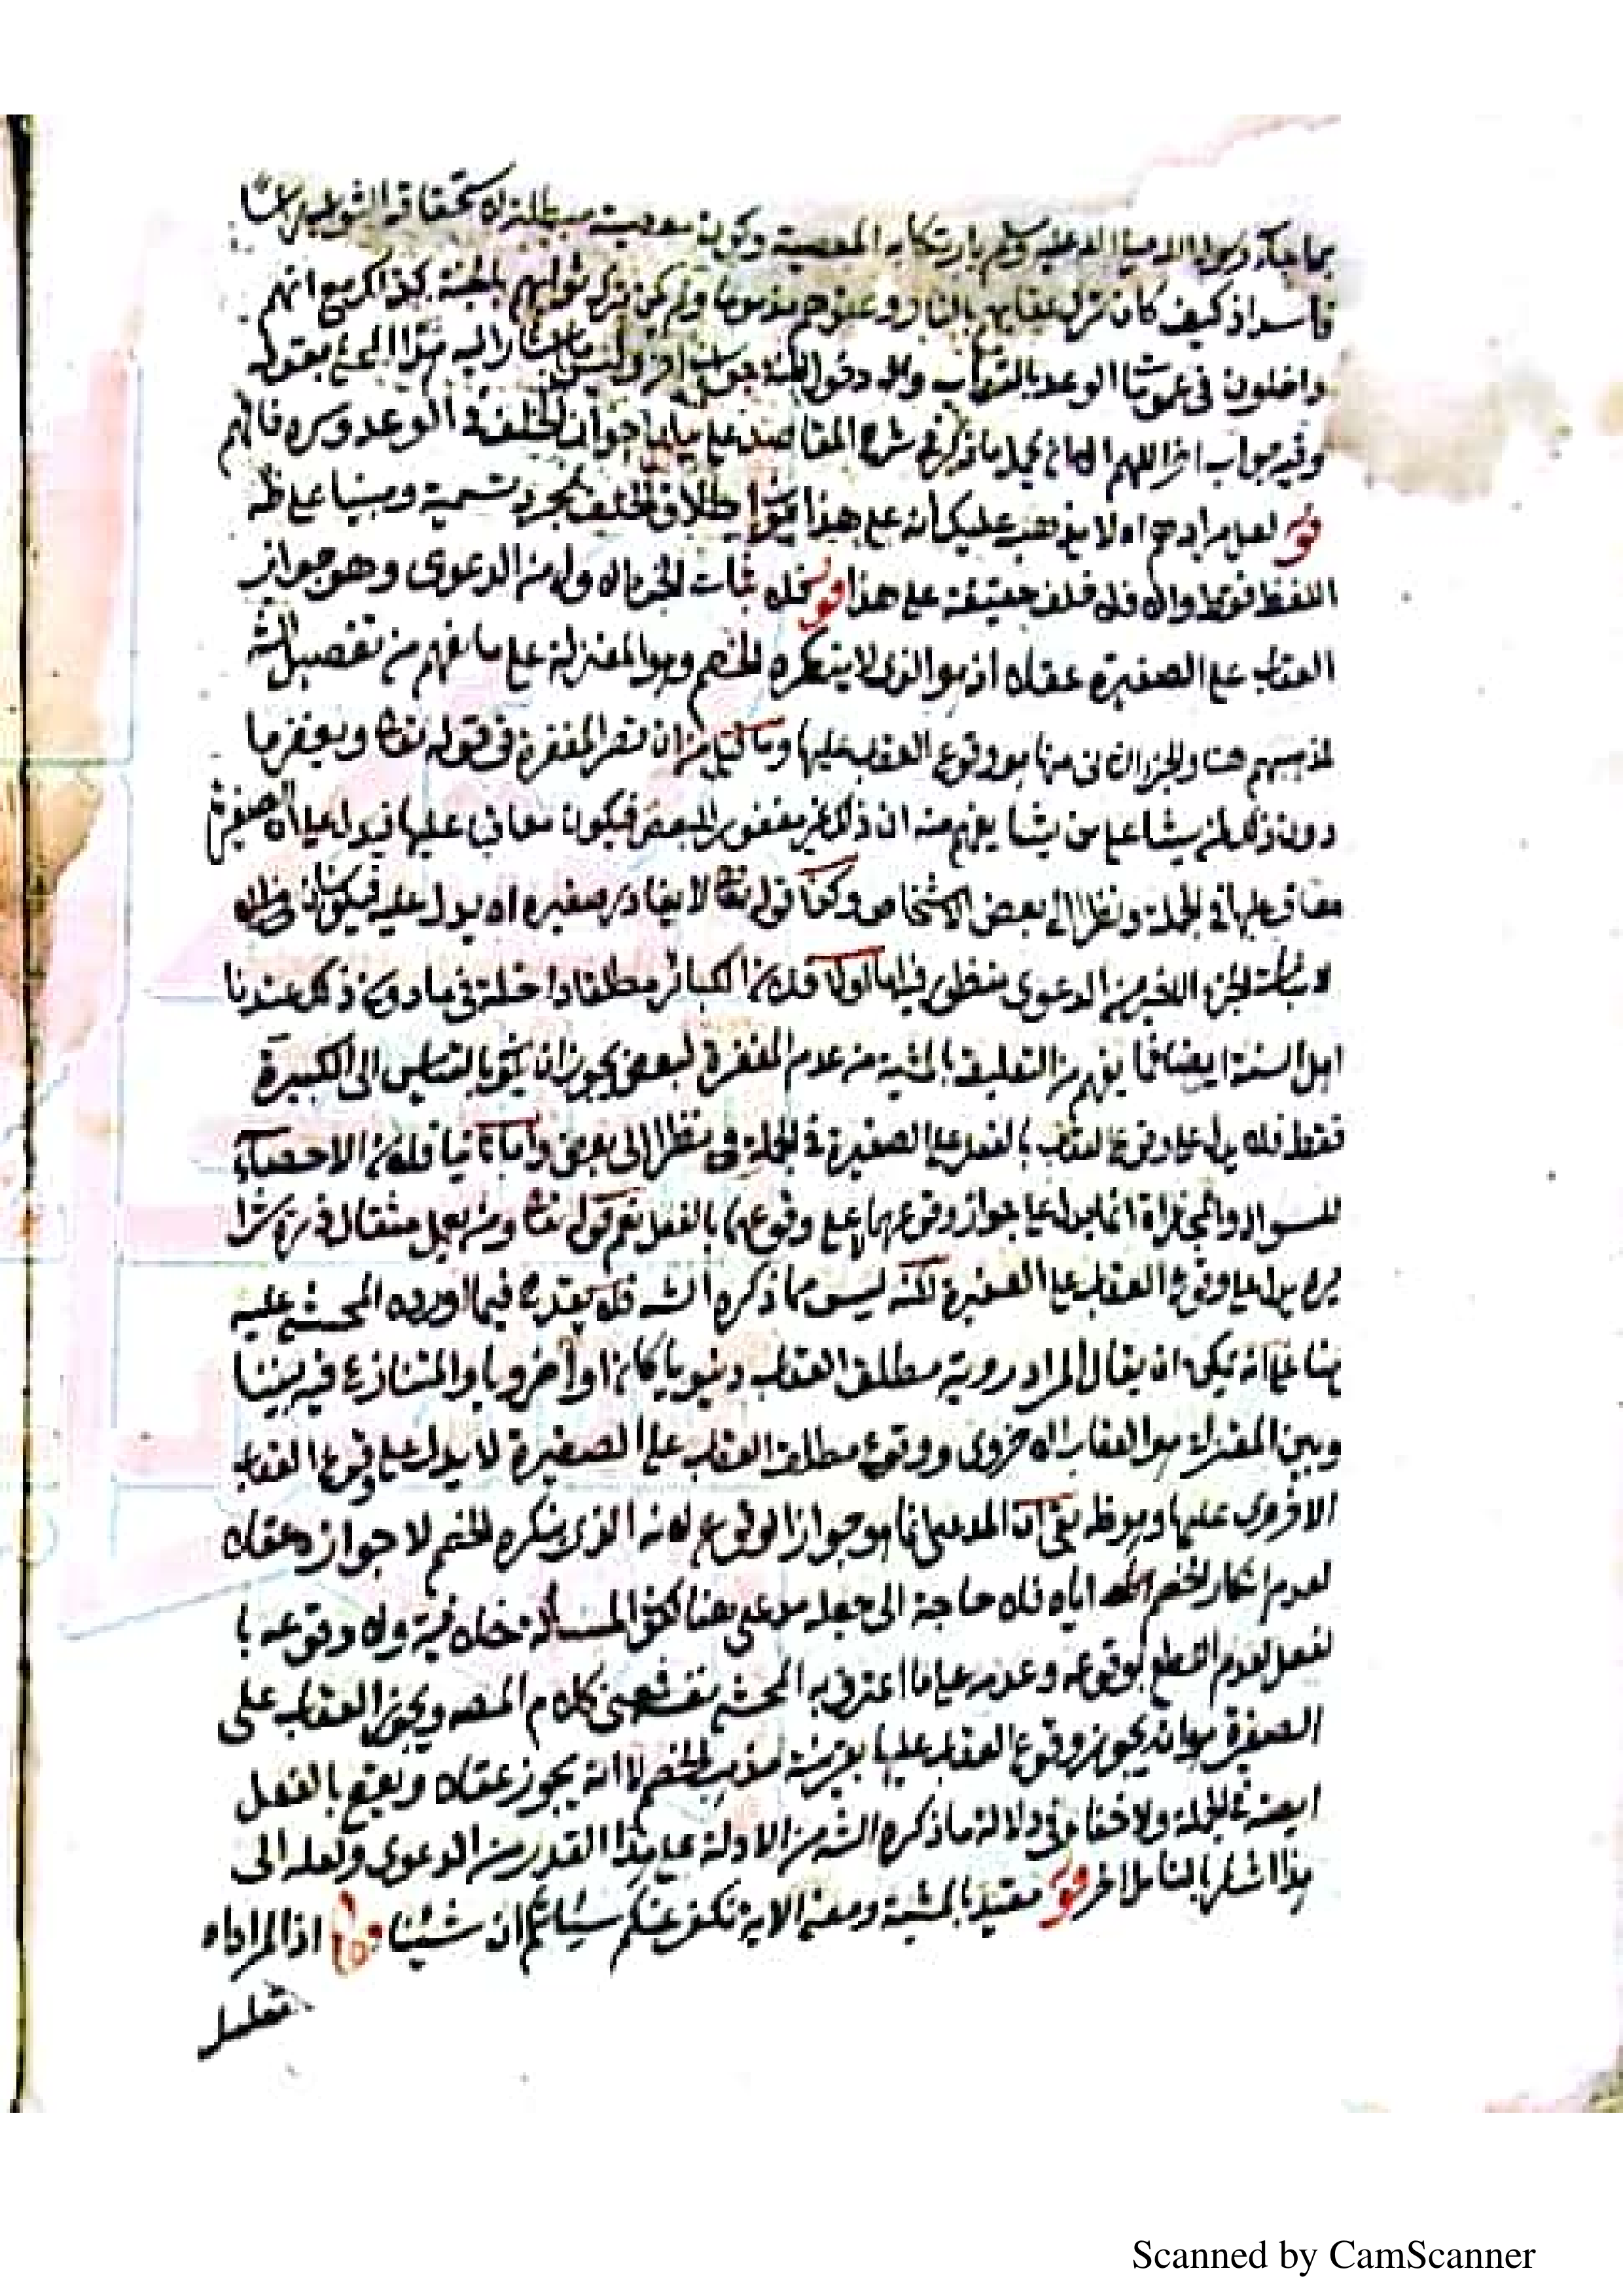 بما جاء به رسول الله صلى الله عليه وسلم بارتكاب المعصية وكون معصية مبطلة لاستحقاقه الثواب
فاسد اذ كيف كان ترك عقابهم بالنار وعفوهم مذموما ولم يكن ترك ثوابهم بالجنة كذلك مع انهم
داخلون في عمومات الوعد بالثواب ودخول الجنة جواب اخر وليس اليه هذا المحشي بقوله
وفيه جواب اخر اللهم الا ان يحمل ما ذكر في شرح المقاصد على جواز الخلف في الوعد وسره فانهم
قو لعل مرادهم اه لا يذهب عليك انه على هذا يكون اطلاق الخلف بمجرد تسمية ومبنيا على ظ
اللفظ فقط والا فلا خلف حقيقة على هذا قو اثبات الجزء الاول من الدعوى وهو جواز
العقاب على الصغيرة عقلا اذ هو الذي لا ينكره الخصم وهو المعتزلة على ما يفهم من تفصيل الش
لمذهبهم هنا والجزء الثاني منها هو وقوع العقاب عليها وما قيل من ان قصر المغفرة في قوله تعا ويغفر ما
دون ذلك لمن يشا على من يشا يفهم منه ان ذلك غير مغفور لبعض فيكون معاقبا عليها فيدل على ان الصغيرة
معاقب عليها في الجملة ونظرا الى بعض الاشخاص وكذا قوله تعا لا يغادر صغيرة اه يدل عليه فيكونان
لاثبات الجزء الاخير من الدعوى منظور فيه اما اولا فلان الكبائر مطلقا داخلة في ما دون ذلك عندنا
اهل السنة ايضا فما يفهم من التعليق بالمشية من عدم المغفرة لبعض يجوز ان يكون بالقياس الى الكبيرة
فقط فلا يدل على وقوع العقاب بالفعل على الصغيرة في الجملة نظرا الى بعض واما ثانيا فلان الاحصاء
للسوال والمجازاة انما يدل على جواز وقوعهما لا على وقوعهما بالفعل نعم قوله تعا ومن يعمل مثقال ذرة شرا
يره يدل على وقوع العقاب على الصغيرة لكنه ليس مما ذكره الش فلا يقدح فيما اورده المحشي عليه
بنا على انه يمكن ان يقال المراد روية مطلق العقاب دنيويا كان او اخرويا والمتنازع فيه بيننا
وبين المعتزلة هو العقاب الاخروي ووقوع مطلق العقاب على الصغيرة لا يدل على وقوع العقاب
الاخروي عليها وهو ظ بقي ان المدعى انما هو جواز الوقوع لانه الذي ينكره الخصم لا جوازه عقلا
لعدم انكار الخصم اياه فلا حاجة الى جعله مدعى هنا لكون المسألة خلافية ولا وقوعه با
لفعل لعدم القطع بوقوعه وعدمه على ما اعترف به المحشي نفسه فمعنى كلام المص ويجوز العقاب على
الصغيرة هو انه يجوز وقوع العقاب عليها بقرينة مذهب الخصم لا انه يجوز عقلا ويقع بالفعل
ايضا في الجملة ولا خفاء في دلالة ما ذكره الش من الادلة على هذا القدر من الدعوى ولعله الى
هذا اشار بالتامل الاخر قو مقيد بالمشية ومعنى الاية نكفر عنكم سيئاتكم ان شئنا اذ المراد اه
تعليل
Scanned by CamScanner